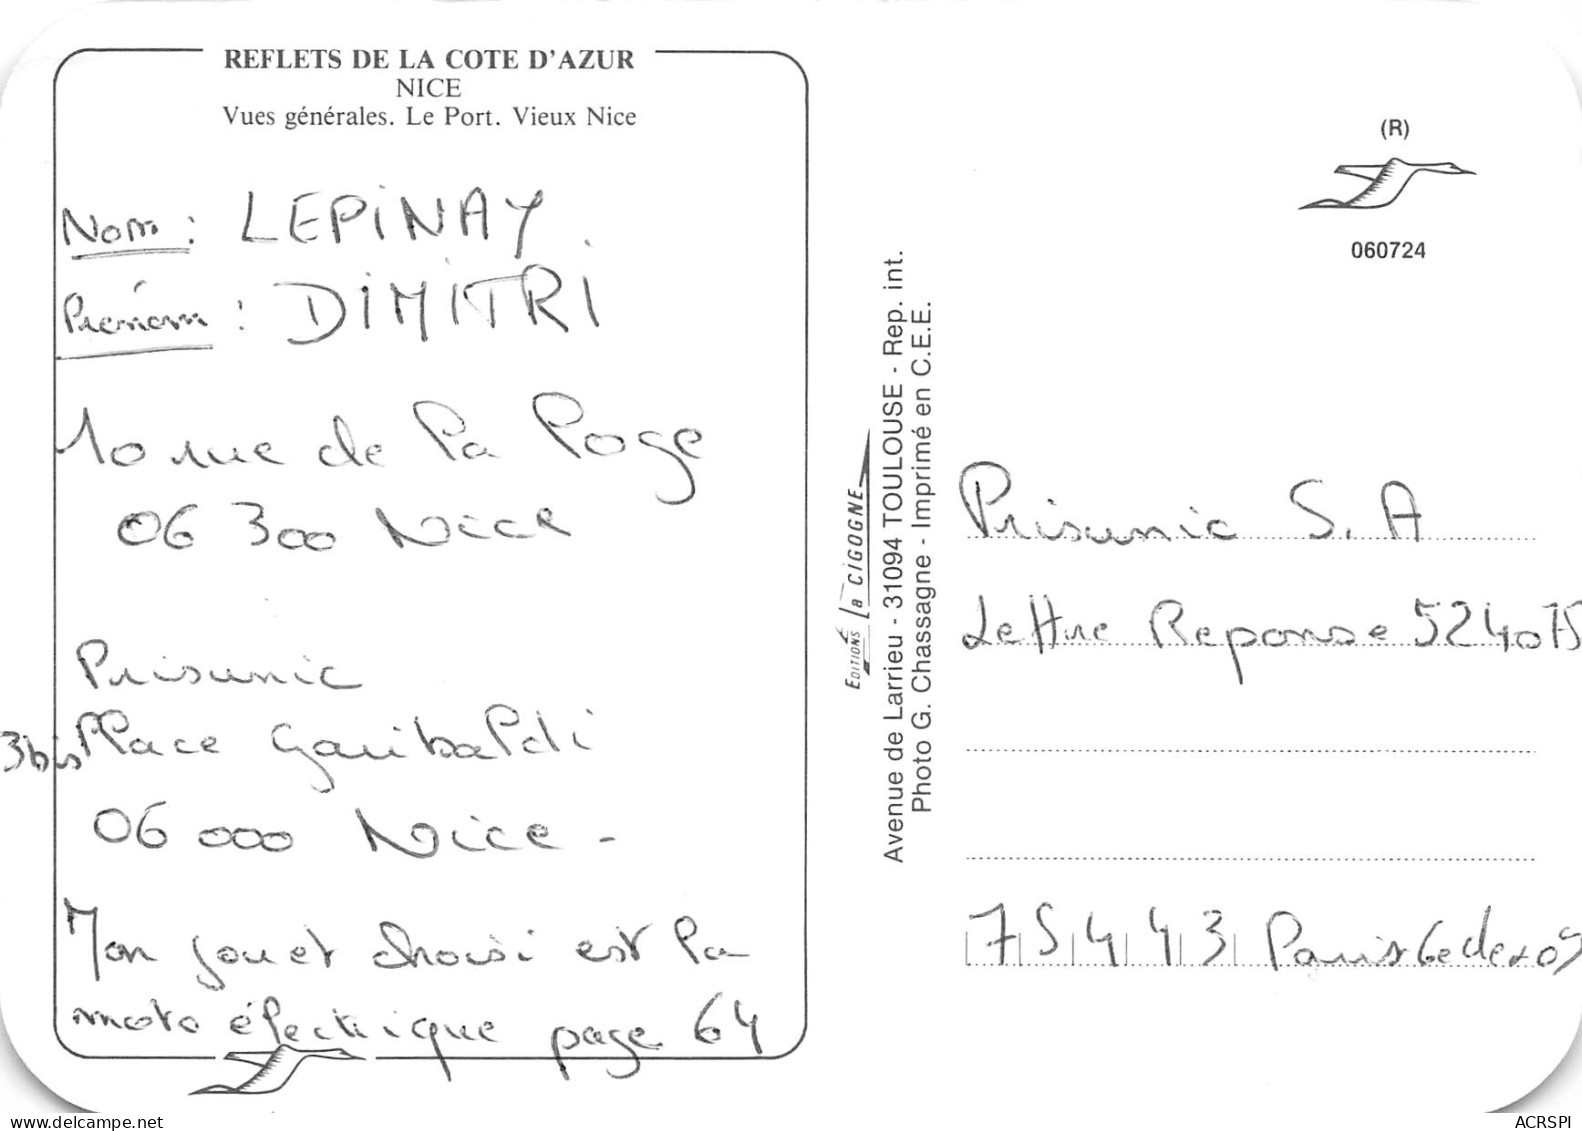 REFLETS DE LA COTE D'AZUR
NICE
Vues générales. Le Port. Vieux Nice
Nom : LEPINAY
Prénom : DIMITRI
10 rue de la Loge
06 300 Nice
Prisunic
3bis Place Garibaldi
06 000 Nice -
Mon jouet choisi est la
moto électrique page 64
EDITIONS La CIGOGNE
Avenue de Larrieu - 31094 TOULOUSE - Rep. int.
Photo G. Chassagne - Imprimé en C.E.E.
(R)
060724
Prisunic S.A
Lettre Reponse 524075
75443 Paris Cedex 09
delcampe.net
ACRSPI